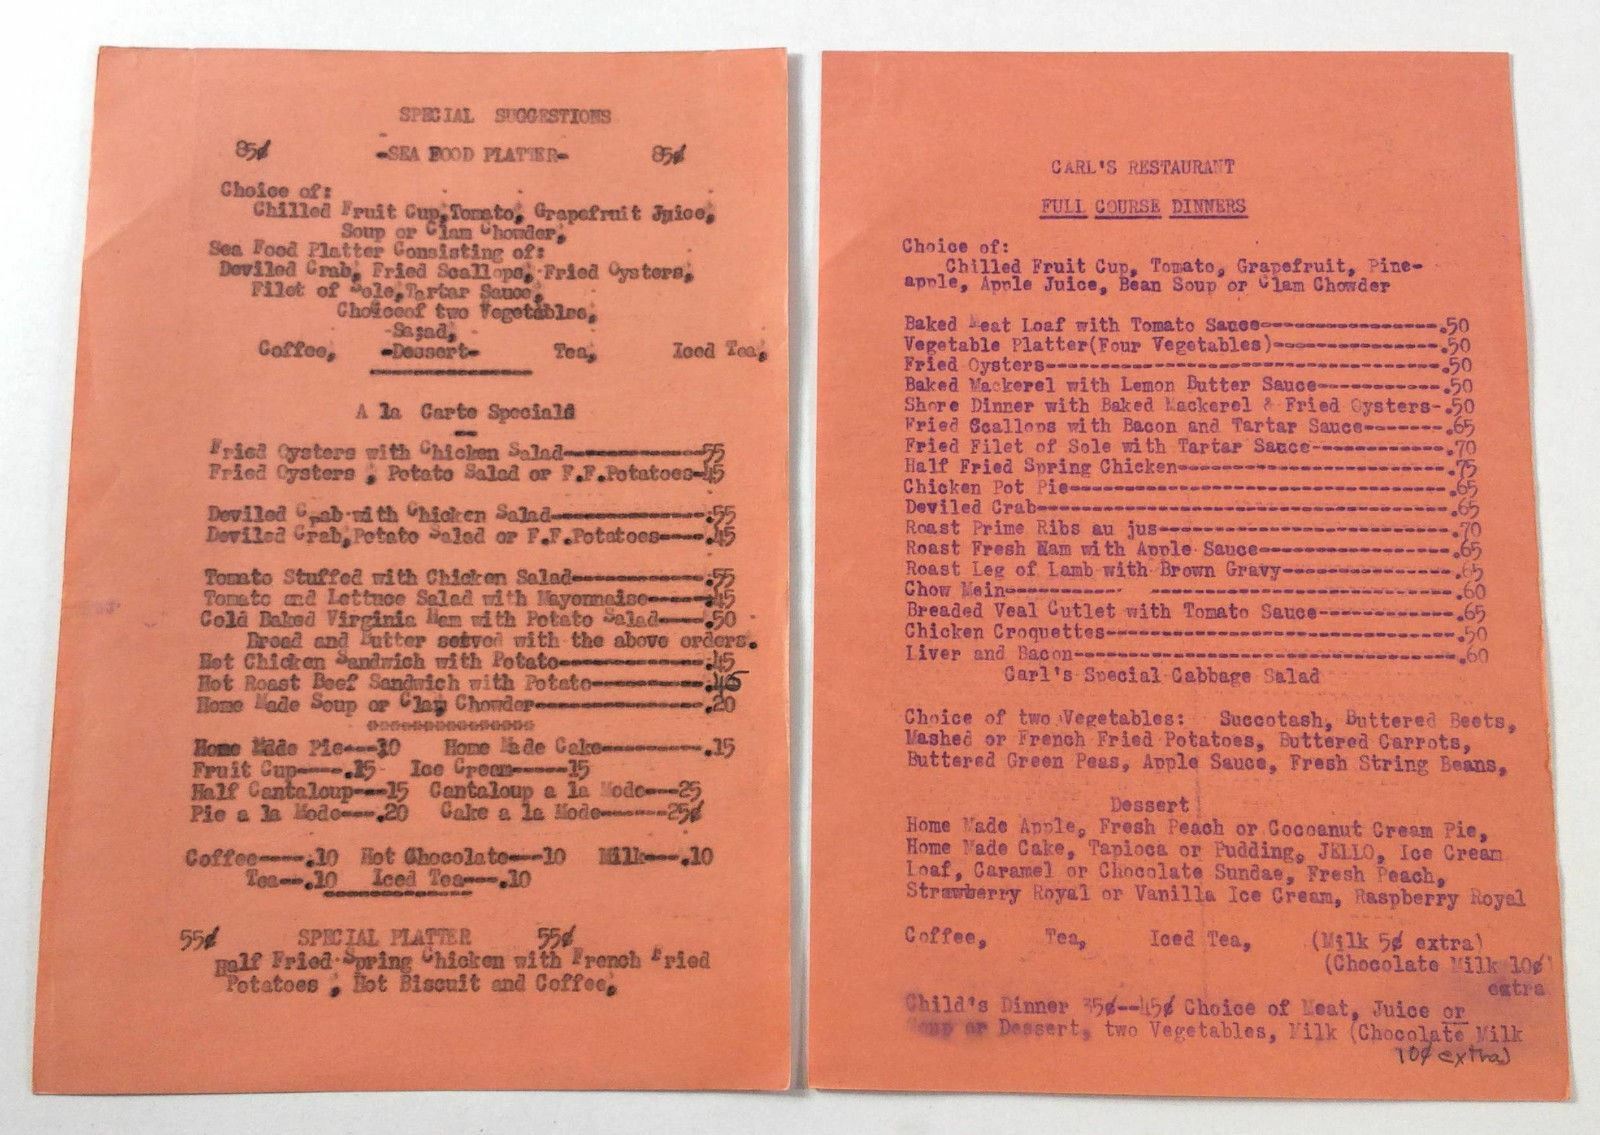 SPECIAL SUGGESTIONS
85¢ -SEA FOOD PLATTER- 85¢
Choice of:
Chilled Fruit Cup, Tomato, Grapefruit Juice,
Soup or Clam Chowder,
Sea Food Platter Consisting of:
Deviled Crab, Fried Scallops, Fried Oysters,
Filet of Sole, Tartar Sauce,
Choiceof two Vegetables,
Salad,
Coffee, -Dessert- Tea, Iced Tea,
A la Carte Specials
Fried Oysters with Chicken Salad----------55
Fried Oysters , Potato Salad or F.F.Potatoes-45
Deviled Crab with Chicken Salad-----------.55
Deviled Crab,Potato Salad or F.F.Potatoes----.45
Tomato Stuffed with Chicken Salad---------.55
Tomato and Lettuce Salad with Mayonnaise----.45
Cold Baked Virginia Ham with Potato Salad----.50
Bread and Butter served with the above orders.
Hot Chicken Sandwich with Potato----------.45
Hot Roast Beef Sandwich with Potato--------.45
Home Made Soup or Clam Chowder------------.20
Home Made Pie---10 Home Made Cake---------.15
Fruit Cup----.15 Ice Cream-----15
Half Cantaloup---15 Cantaloup a la Mode---25
Pie a la Mode---.20 Cake a la Mode------25¢
Coffee----.10 Hot Chocolate---10 Milk---.10
Tea--.10 Iced Tea---.10
55¢ SPECIAL PLATTER 55¢
Half Fried Spring Chicken with French Fried
Potatoes , Hot Biscuit and Coffee,
CARL'S RESTAURANT
FULL COURSE DINNERS
Choice of:
Chilled Fruit Cup, Tomato, Grapefruit, Pine-
apple, Apple Juice, Bean Soup or Clam Chowder
Baked Meat Loaf with Tomato Sauce----------------.50
Vegetable Platter(Four Vegetables)---------------.50
Fried Oysters------------------------------------.50
Baked Mackerel with Lemon Butter Sauce-----------.50
Shore Dinner with Baked Mackerel & Fried Oysters-.50
Fried Scallops with Bacon and Tartar Sauce-------.65
Fried Filet of Sole with Tartar Sauce------------.70
Half Fried Spring Chicken------------------------.75
Chicken Pot Pie----------------------------------.65
Deviled Crab-------------------------------------.65
Roast Prime Ribs au jus--------------------------.70
Roast Fresh Ham with Apple Sauce-----------------.65
Roast Leg of Lamb with Brown Gravy---------------.65
Chow Mein----------- ---------------------------.60
Breaded Veal Cutlet with Tomato Sauce------------.65
Chicken Croquettes-------------------------------.50
Liver and Bacon----------------------------------.60
Carl's Special Cabbage Salad
Choice of two Vegetables: Succotash, Buttered Beets,
Mashed or French Fried Potatoes, Buttered Carrots,
Buttered Green Peas, Apple Sauce, Fresh String Beans,
Dessert
Home Made Apple, Fresh Peach or Cocoanut Cream Pie,
Home Made Cake, Tapioca or Pudding, JELLO, Ice Cream
Loaf, Caramel or Chocolate Sundae, Fresh Peach,
Strawberry Royal or Vanilla Ice Cream, Raspberry Royal
Coffee, Tea, Iced Tea, (Milk 5¢ extra)
(Chocolate Milk 10¢
extra
Child's Dinner 35¢--45¢ Choice of Meat, Juice or
Soup or Dessert, two Vegetables, Milk (Chocolate Milk
10¢ extra)